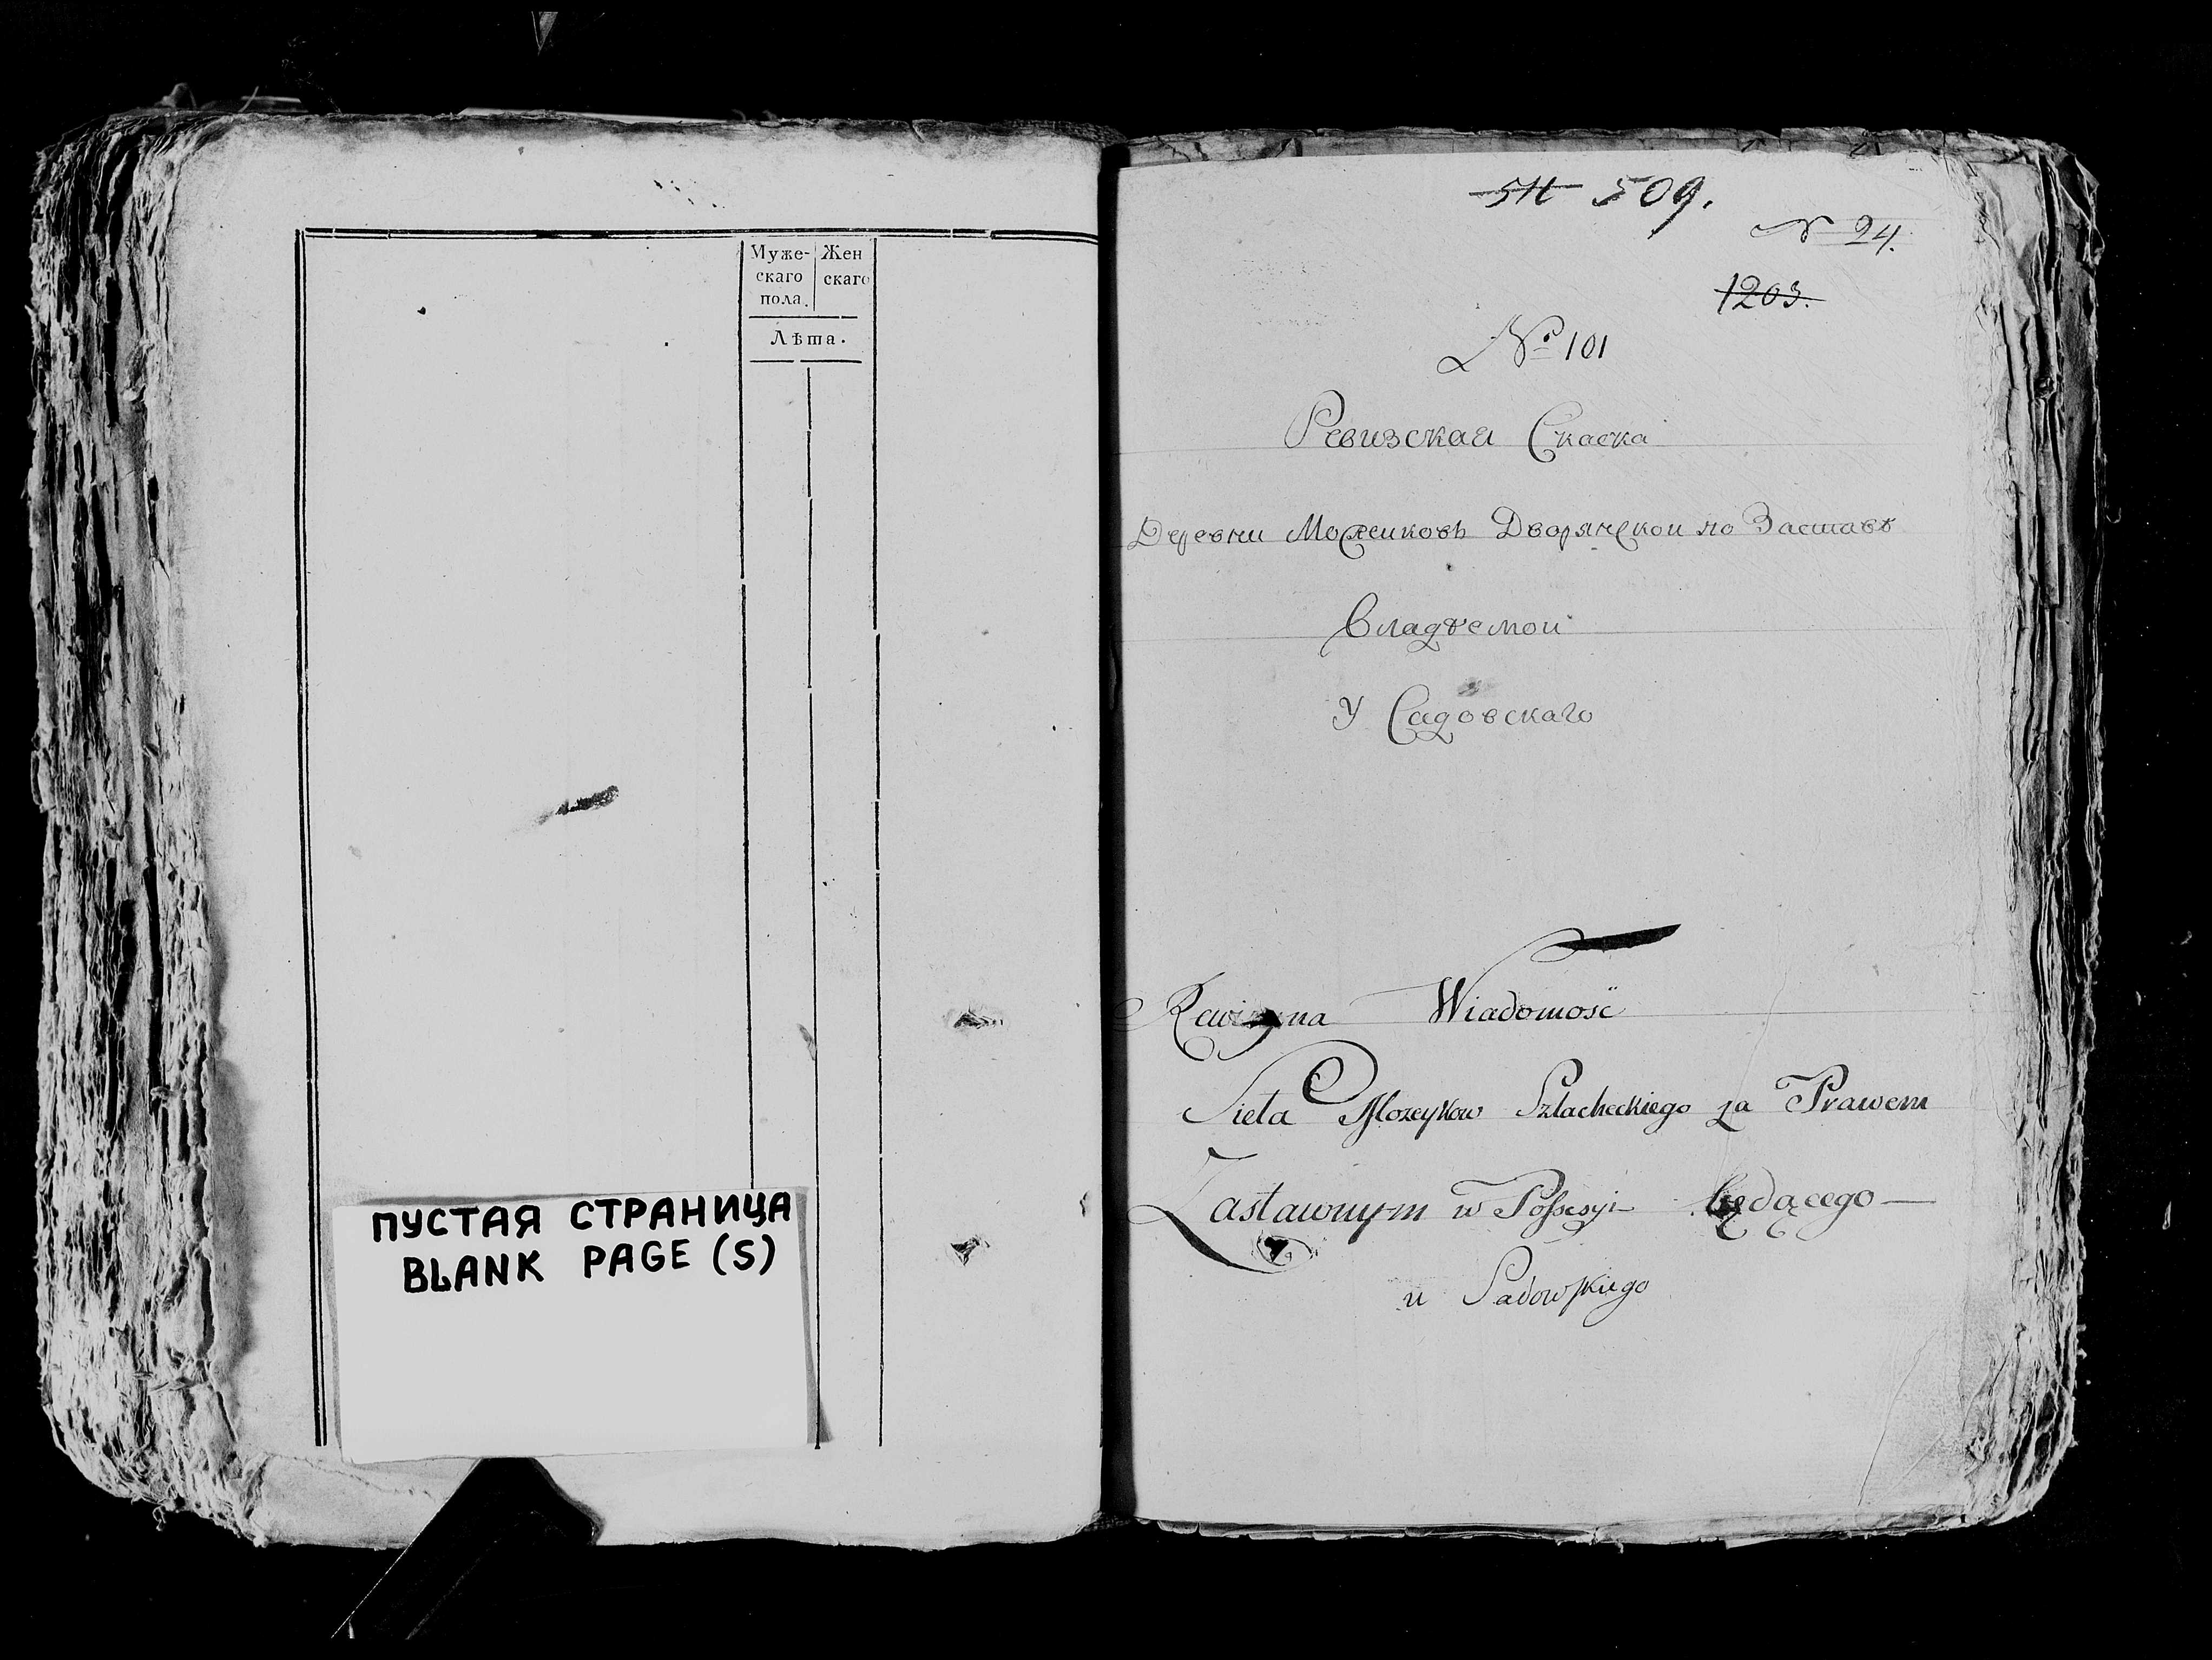 Муже-
скаго
пола.
Жен
скаго
Лѣта.
ПУСТАЯ СТРАНИЦА
BLANK PAGE (S)
511 509.
N 24.
1203.
№ 101
Ревизская Скаска
Деревни Можеиковъ Дворянской по Заставѣ
Владѣемой
У Садовскаго
Wiadomość
Sieła Mozeykow Szlacheckiego za Prawem
Zastawnym w Possesyi będącego
u Sadowskiego